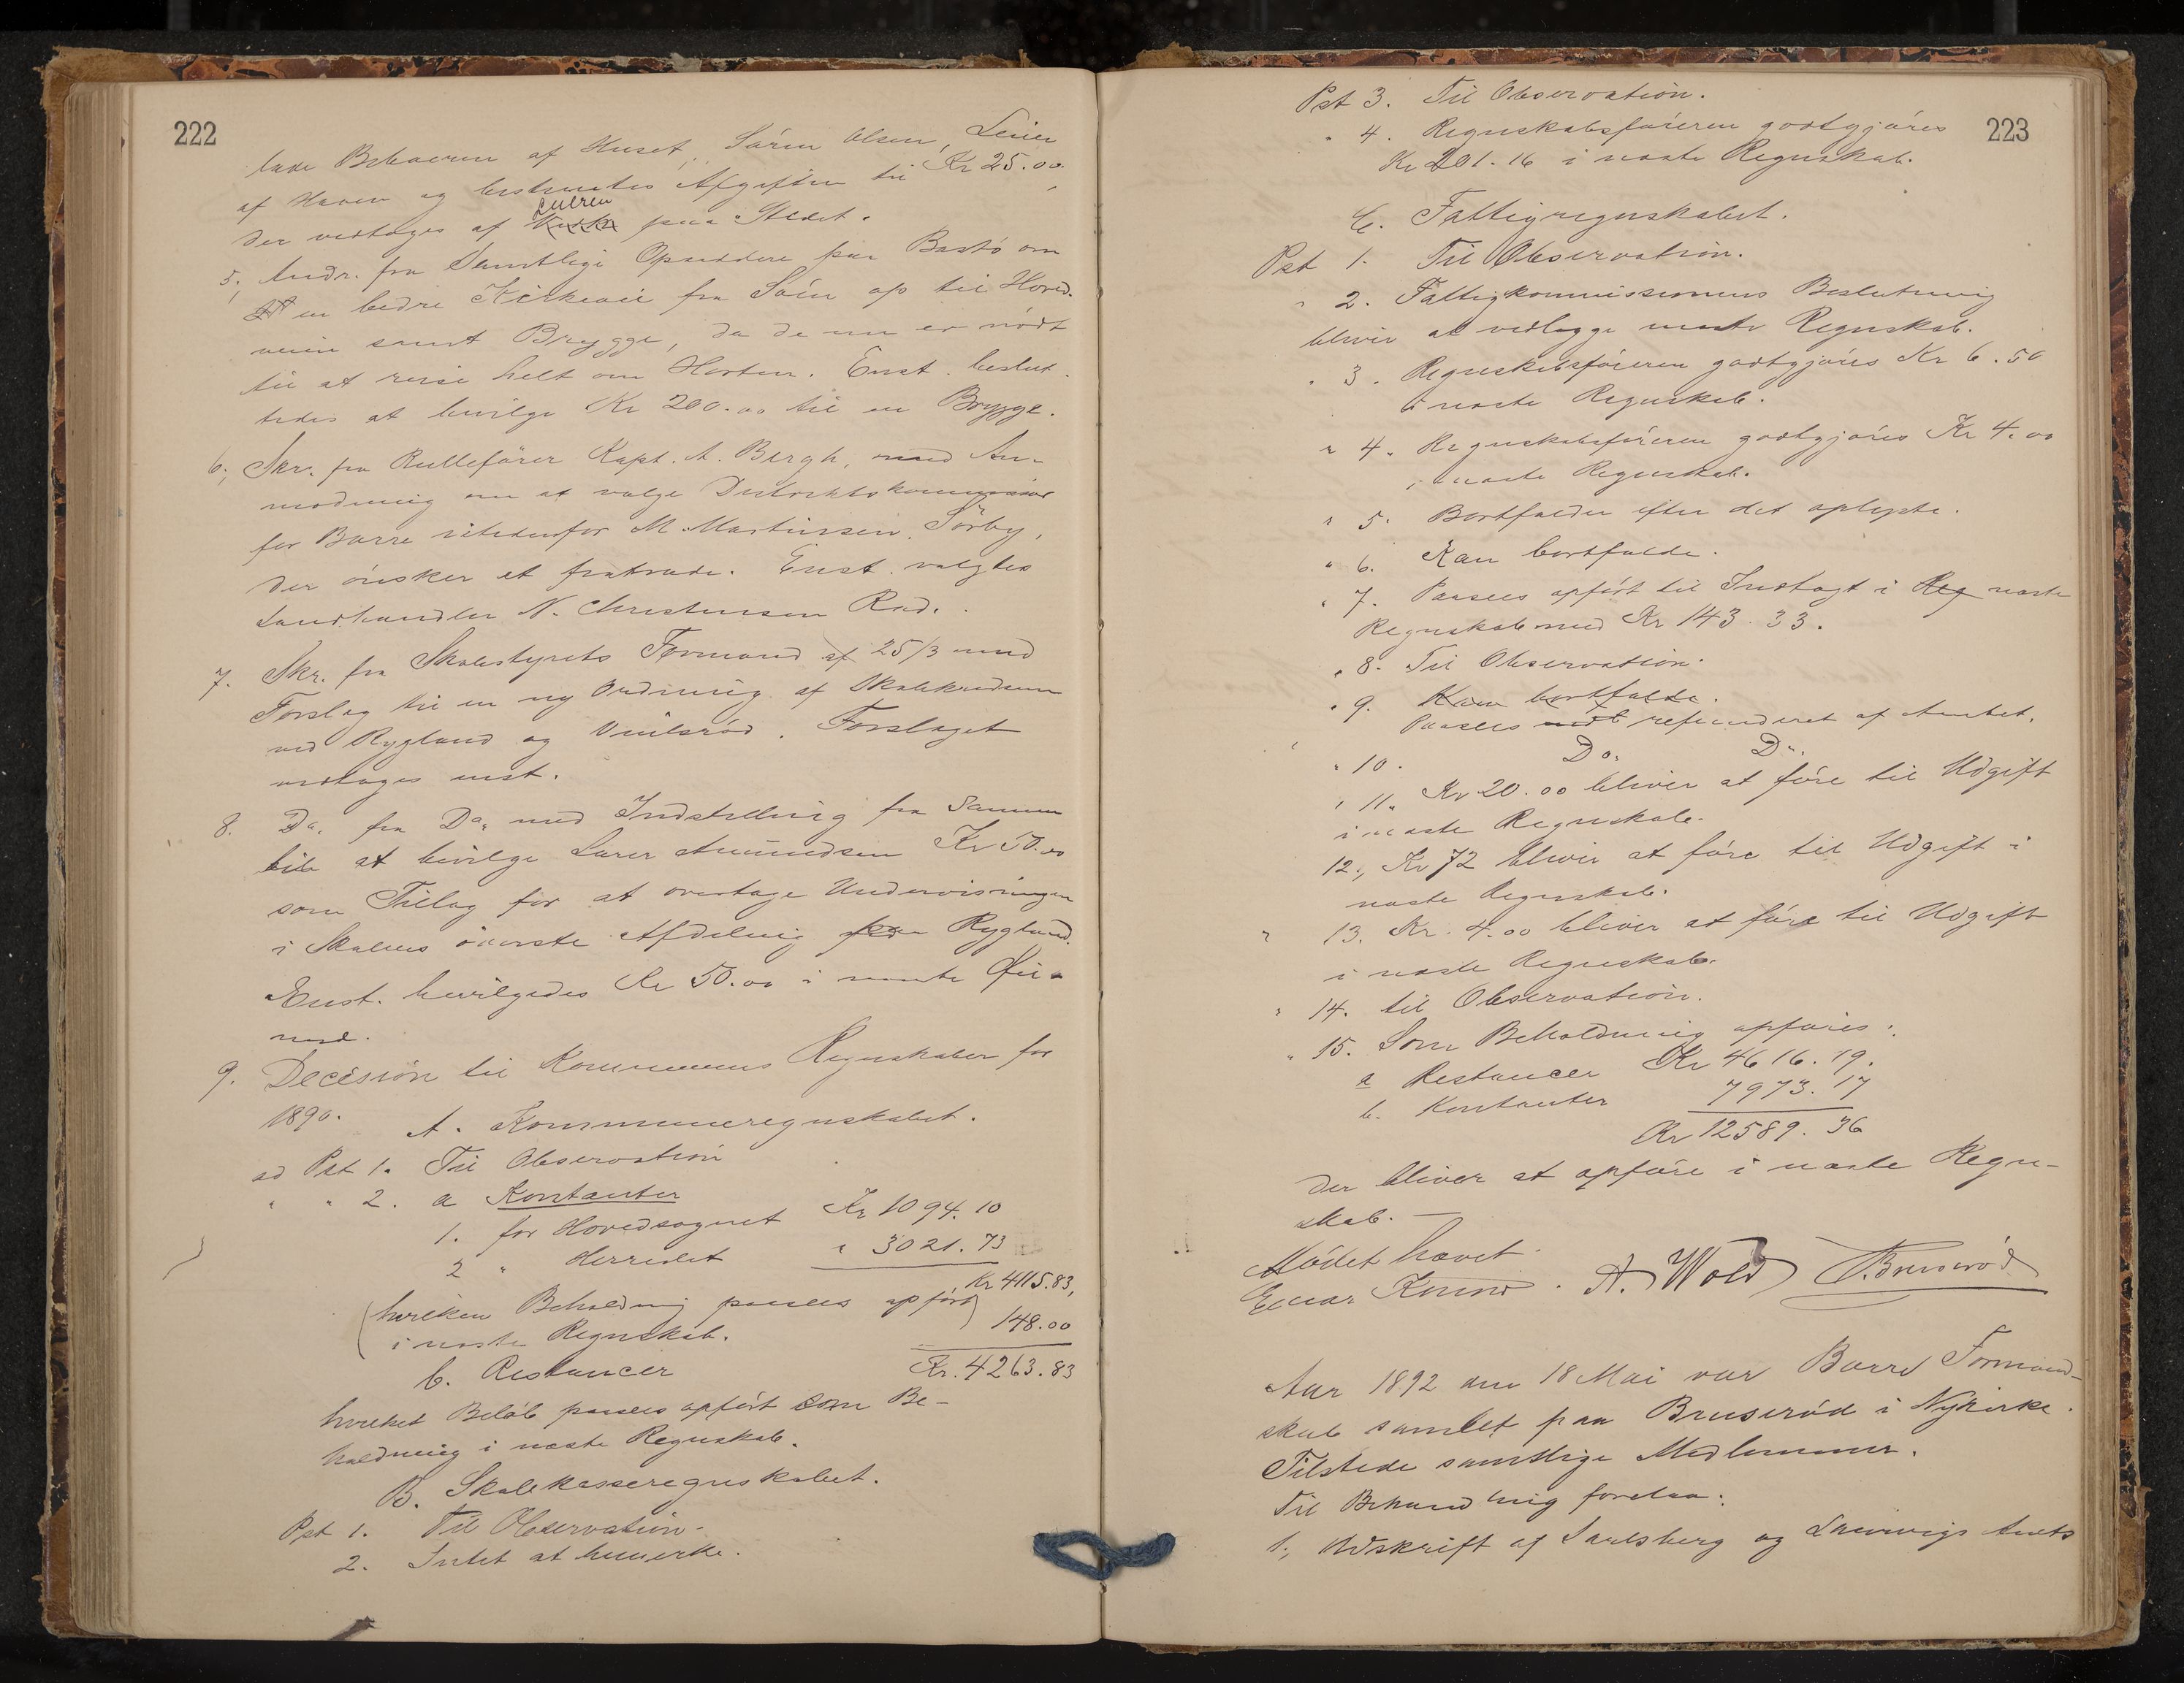 222
lade Beboeren af Huset, Sören Olsen, Leier
af Haven og bestemtes Afgiften til Kr 25.00,
der vedtages af Leieren paa Stedet.
5, Andr. fra Samtlige Opsiddere paa Bastö om
en bedre Kirkevei fra Söen op til Hoved-
veien samt Brygge, da de nu er nödt
til at reise helt om Horten. Enst. beslut-
tedes at bevilge Kr 200.00 til en Brygge.
6, Skr. fra Rulleförer Kapt. A. Bergh, med An-
modning om at vælge Distriktskommissær
for Borre istedenfor M. Martinsen, Sörby,
der önsker at fratræde. Enst. valgtes
Landhandler N. Christensen Rød.
7. Skr. fra Skolestyrets Formand af 25/3 med
Forslag til en ny Ordning af Skolekredsene
ved Rygland og Vivilsröd. Forslaget
vedtages enst.
8. Do. fra Do. med Indstilling fra Samme
til at bevilge Lærer Amundsen Kr 50.00
som Tillæg for at overtage Undervisningen
i Skolens överste Afdeling paa Rygland.
Enst. bevilgedes Kr 50.00 i nævnte Öie-
med.
9. Decision til Kommunens Regnskaber for
1890.
A. Kommuneregnskabet.
ad Pst 1. Til Observation
" " 2. a Kontanter
1. for Hovedsognet Kr 1094.10
2 " Herredet " 3021.73
Kr 4115.83,
(hvilken Beholdning paasees opfört)
i næste Regnskab. 148.00
b. Restancer Kr. 4263.83
hvilket Belöb paasees opfört som Be-
holdning i næste Regnskab.
B. Skolekasseregnskabet.
Pst 1. Til Observation.
2. Intet at bemerke.
223
Pst 3. Til Observation.
" 4. Regnskabsföreren godtgjöres
Kr 201.16 i næste Regnskab.
C. Fattigregnskabet.
Pst 1. Til Observation.
" 2. Fattigkommissionens Beslutning
bliver at vedlægge næste Regnskab.
" 3. Regnskabsföreren godtgjöres Kr 6.50
i næste Regnskab.
" 4. Regnskabsföreren godtgjöres Kr 4.00
i næste Regnskab.
" 5. Bortfalder efter det oplyste.
" 6. Kan bortfalde.
" 7. Paasees opfört til Indtægt i Reg næste
Regnskab med Kr 143.33.
" 8. Til Observation.
" 9. Kan bortfalde.
Paasees refunderet af Amtet.
" 10. Do. Do.
" 11. Kr 20.00 bliver at före til Udgift
i næste Regnskab.
12., Kr 72 bliver at före til Udgift i
næste Regnskab.
" 13. Kr. 4.00 bliver at före til Udgift
i næste Regnskab.
" 14. til Observation.
" 15. Som Beholdning opföres:
a Restancer Kr 4616.19.
b. Kontanter 7973.17
Kr 12589.36
der bliver at opföre i næste Regn-
skab.—
Mödet hævet
A. Wold Bruseröd
Aar 1892 den 18 Mai var Borre Formand-
skab samlet paa Bruseröd i Nykirke.
Tilstede samtlige Medlemmer.
Til Behandling forelaa:
1., Udskrift af Jarlsberg og Laurvigs Amts